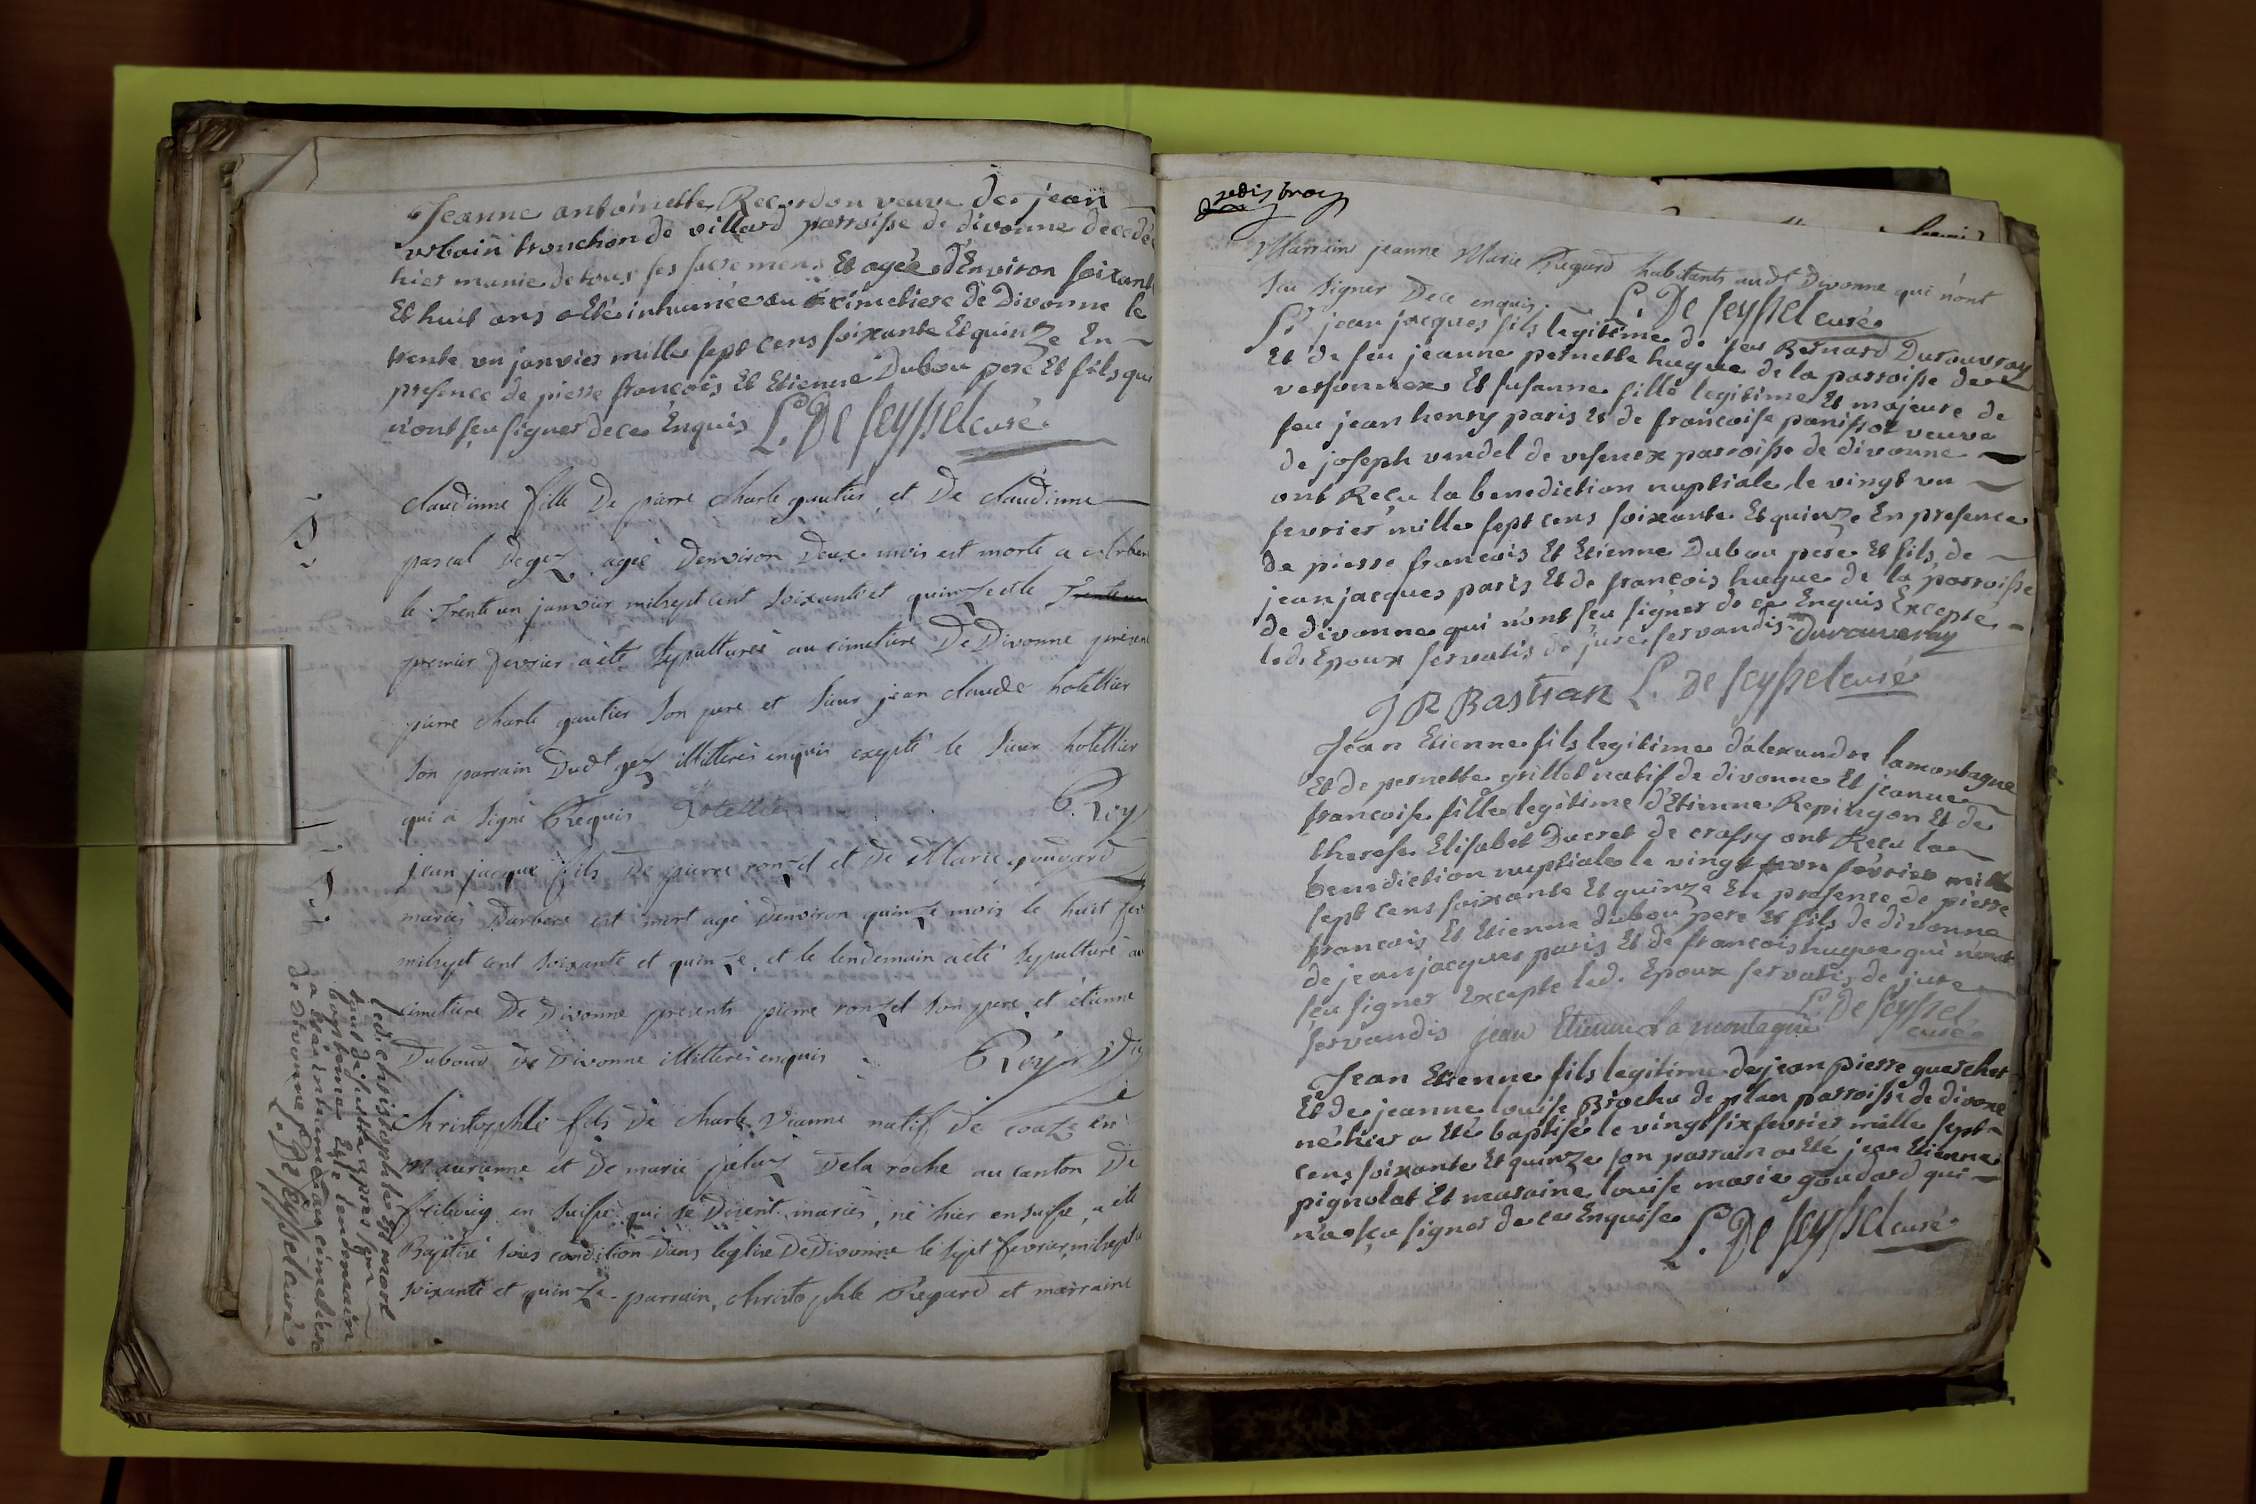 Jeanne antoinette Recordon veuve de jean
urbain tronchon de villard parroisse de divonne decedée
hier munie de tous ses sacremens Et agée d'Environ soixante
Et huit ans a été inhumée au cimetiere de Divonne le
trente un janvier mille sept cens soixante Et quinze En
presence de pierre francois Et Etienne Dubou pere Et fils qui
n'ont sçu signer de ce Enquis L. De seyssel curé
claudinne fille De pierre charle gautier et De claudinne
pascal De gez agée Denviron Deux mois est morte a arbere
le Trente un janvier milsept cent soixante et quinze et le Trente un
premier fevrier a été sepulturée au cimetiere De Divonne présent
pierre charle gautier son pere et sieur jean claude hotellier
son parrain Dudt gez illitterés enquis excepté le sieur hotellier
qui a signé Requis hotellier Roy
jean jacque fils De pierre ronzel et De Marie goudard
mariés Darbere est mort agé Denviron quinze mois le huit fev
milsept cent soixante et quinze, et le lendemain a été sepulturé au
cimetiere De Divonne presents pierre ronzel son pere, et etienne
Duboud de Divonne illitterés enquis Roy
Christophle fils De charle vianne natif De en
maurienne et De marie De la roche au canton De
fribourg en suisse qui se Disent mariés, né hier en suisse, a été
Baptisé sous condition Dans leglise De Divonne le sept fevrier milsept c
soixante et quinze - parrain, christophle Regard et marraine
led. christophle Est mort
tout de suitte apres son
bapteme Et le lendemain
a été inhumé au cimetiere
de Divonne
L. De seyssel curé
Marraine jeanne Marie Regard habitants audt Divonne qui n'ont
sçu signer De ce enquis. L. De seyssel curé
Sr jean jacques fils legitime de feu Bernard Durouvray
Et de feu jeanne pernette hugue de la parroisse de
versonnex Et susanne fille legitime Et majeure de
feu jean henry paris Et de francoise panissot veuve
de joseph vendel de vesenex parroisse de divonne
ont Reçu la benediction nuptiale le vingt un
fevrier mille sept cens soixante Et quinze En presence
de pierre francois Et Etienne Dubou pere Et fils de
jean jacques paris Et de françois hugue de la parroisse
de divonne qui n'ont sçu signer de ce Enquis Excepté
led. Epoux servatis de jure servandis. Durouveray
J R Bastian L. De seyssel curé
Jean Etienne fils legitime d'alexandre lamontagne
Et de pernette grillet natif de divonne Et jeanne
francoise fille legitime d'Etienne Repingon Et de
therese Elisabet Ducret de crassy ont Reçu la
benediction nuptiale le vingt un fevrier mille
sept cens soixante Et quinze En presence de pierre
francois Et Etienne dubou pere Et fils de divonne
de jean jacques paris Et de francois hugue qui n'ont
sçu signer Excepté led. Epoux servatis de jure
servandis jean Etienne La montagne L. De seyssel
curé
Jean Etienne fils legitime de jean pierre querchet
Et de jeanne louise Brochu de plan parroisse de divone
né hier a été baptisé le vingt six fevrier mille sept
cens soixante Et quinze son parrain a été jean Etienne
pignolet Et maraine louise marie goudard qui
n'a sçu signer de ce Enquise L. De seyssel curé